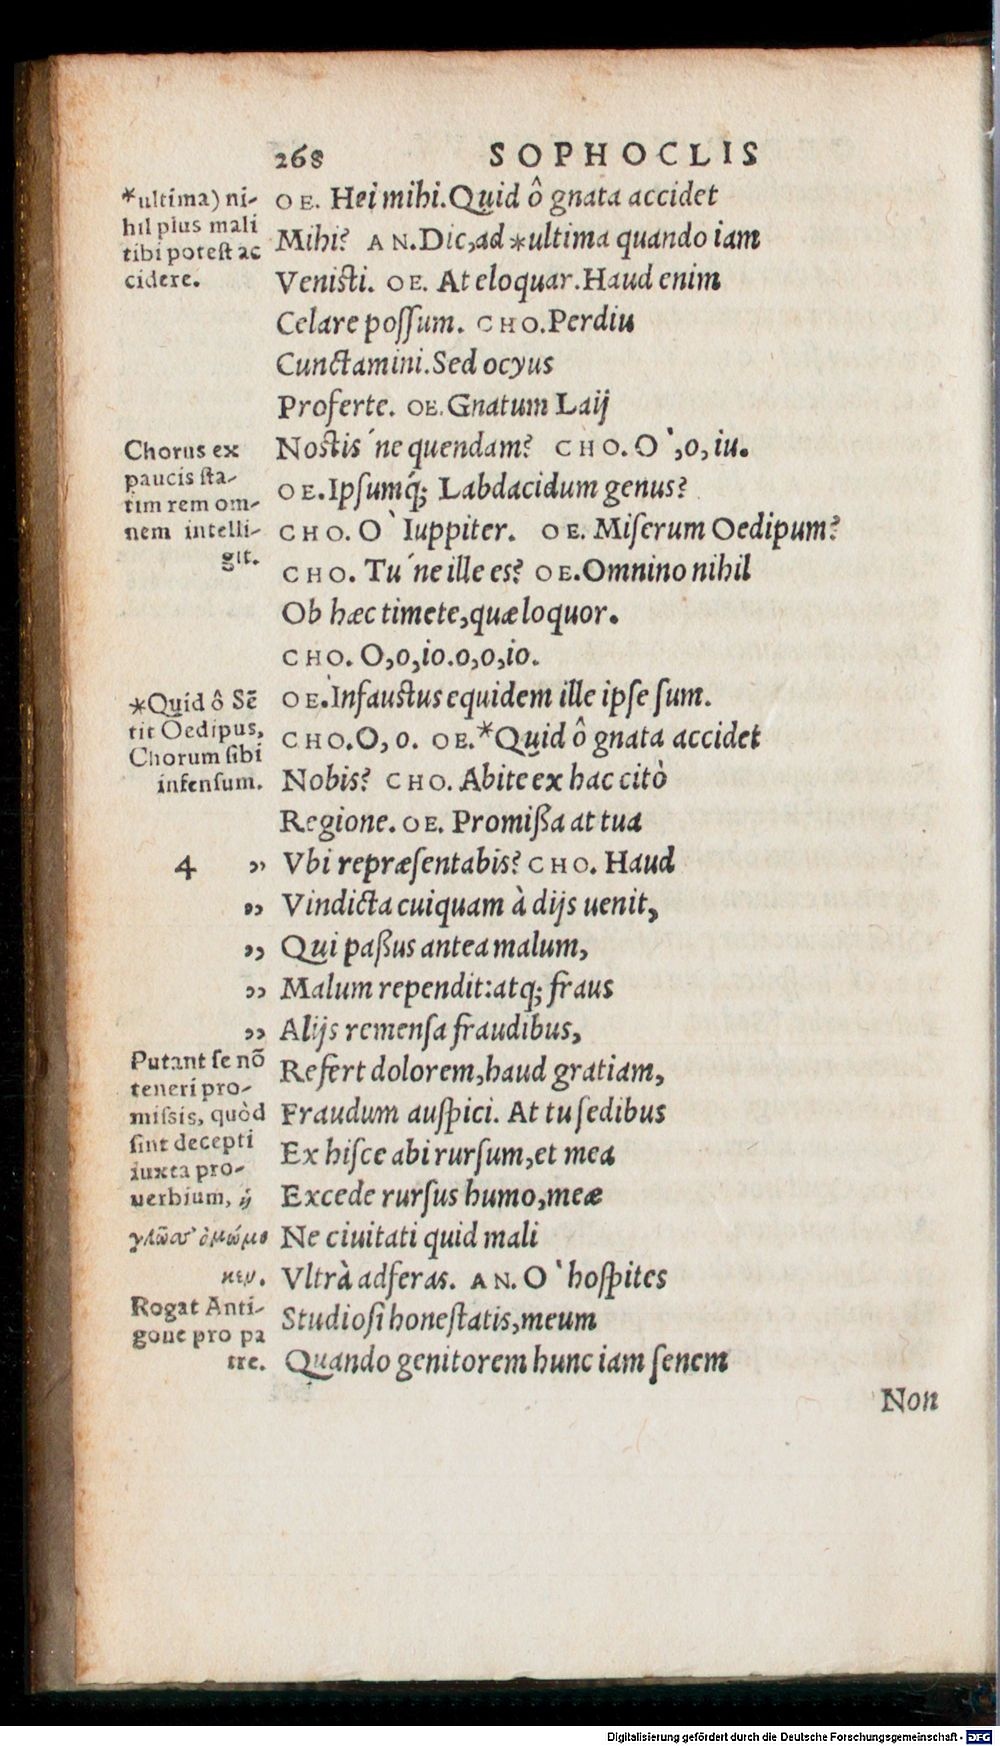 268 SOPHOCLIS
*ultima) ni-
hil plus mali
tibi potest ac
cidere.
OE. Hei mihi. Quid ô gnata accidet
Mihi? AN. Dic, ad *ultima quando iam
Venisti. OE. At eloquar. Haud enim
Celare possum. CHO. Perdiu
Cunctamini. Sed ocyus
Proferte. OE. Gnatum Laij
Chorus ex
paucis sta-
tim rem om-
nem intelli-
git.
Nostis´ne quendam? CHO. O`, o, iu.
OE. Ipsumq́; Labdacidum genus?
CHO. O` Iuppiter. OE. Miserum Oedipum?
CHO. Tu´ne ille es? OE. Omnino nihil
Ob hæc timete, quæ loquor.
CHO. O, o, io. o, o, io.
*Quid ô Sẽ
tit Oedipus,
Chorum sibi
infensum.
OE. Infaustus equidem ille ipse sum.
CHO. O, o. OE. *Quid ô gnata accidet
Nobis? CHO. Abite ex hac citò
Regione. OE. Promißa at tua
4 ,, Vbi repræsentabis? CHO. Haud
,, Vindicta cuiquam à dijs uenit,
,, Qui paßus antea malum,
,, Malum rependit: atq; fraus
,, Alijs remensa fraudibus,
Putant se nõ
teneri pro-
missis, quòd
sint decepti
iuxta pro-
uerbium, ἡ
γλῶσσ' ὀμώμο
κεν.
Refert dolorem, haud gratiam,
Fraudum auspici. At tu sedibus
Ex hisce abi rursum, et mea
Excede rursus humo, meæ
Ne ciuitati quid mali
Vltrà adferas. AN. O` hospites
Rogat Anti-
gone pro pa
tre.
Studiosi honestatis, meum
Quando genitorem hunc iam senem
Non
Digitalisierung gefördert durch die Deutsche Forschungsgemeinschaft - DFG